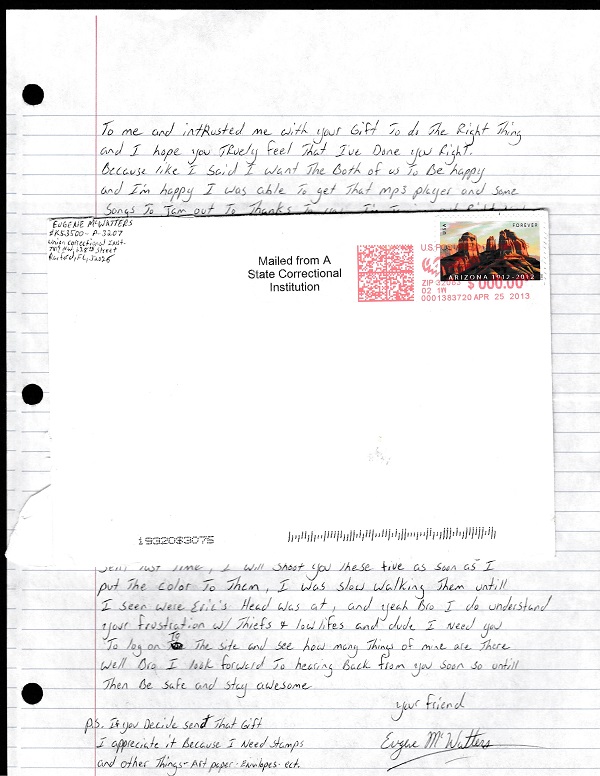 To me and intRusted me with your Gift To do The Right Thing
and I hope you TRuely feel That I've Done you Right.
Because like I Said I want The Both of us To Be happy
and I'm happy I was able To get That mp3 player and some
Songs To Jam out To Thanks To
EUGENE McWATTERS
Union Correctional Inst.
Raiford, FL, 32026
Mailed from A
State Correctional
Institution
U.S. PO
ZIP 32083
02 1W
$ 000.00
0001383720 APR 25 2013
USA
FOREVER
ARIZONA 1912-2012
1932083075
sent last Time, I will shoot you these five as soon as I
put The color To Them, I was slow walking Them untill
I seen were Eric's Head was at, and yeah Bro I do understand
your frustration w/ Thiefs & lowlifes and dude I need you
To log on To The site and see how many Things of mine are There
well Bro I look forward To hearing Back from you soon so untill
Then Be safe and stay awesome
your friend
Eugene McWatters
P.S. If you Decide send That Gift
I appreciate it Because I Need Stamps
and other Things - Art paper - Envelopes - ect.